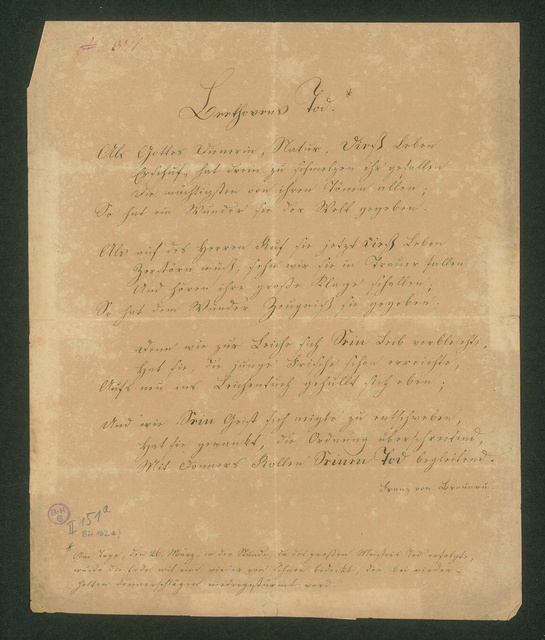 Beethovens Tod.*
Als Gottes Dienerin, Natur, Dieß Leben
Erschuf, hat drein zu schmelzen ihr gefallen
Die mächtigsten von ihren Tönen allen;
So hat ein Wunder sie der Welt gegeben.
Als auf des Herren Ruf sie jetzt Dieß Leben
Zerstören mußt, sahn wir sie in Trauer fallen
Und hören ihre große Klage schallen;
So hat dem Wunder Zeugniß sie gegeben.
Denn wie zur Leiche sich Sein Leib verbleichte,
Hat sie, die junge Frische schon erreichte,
Aufs neu ins Leichentuch gehüllt sich eben;
Und wie Sein Geist sich neigte zu entschweben,
Hat sie gewankt, die Ordnung überschreitend,
Mit Donners Rollen Seinen Tod begleitend.
Franz von
II 151a
* Am Tage, den 26. März, in der Stunde, da des großen Meisters Tod erfolgte,
wurde die Erde mit Schnee bedeckt, der bei
Donnerschlägen